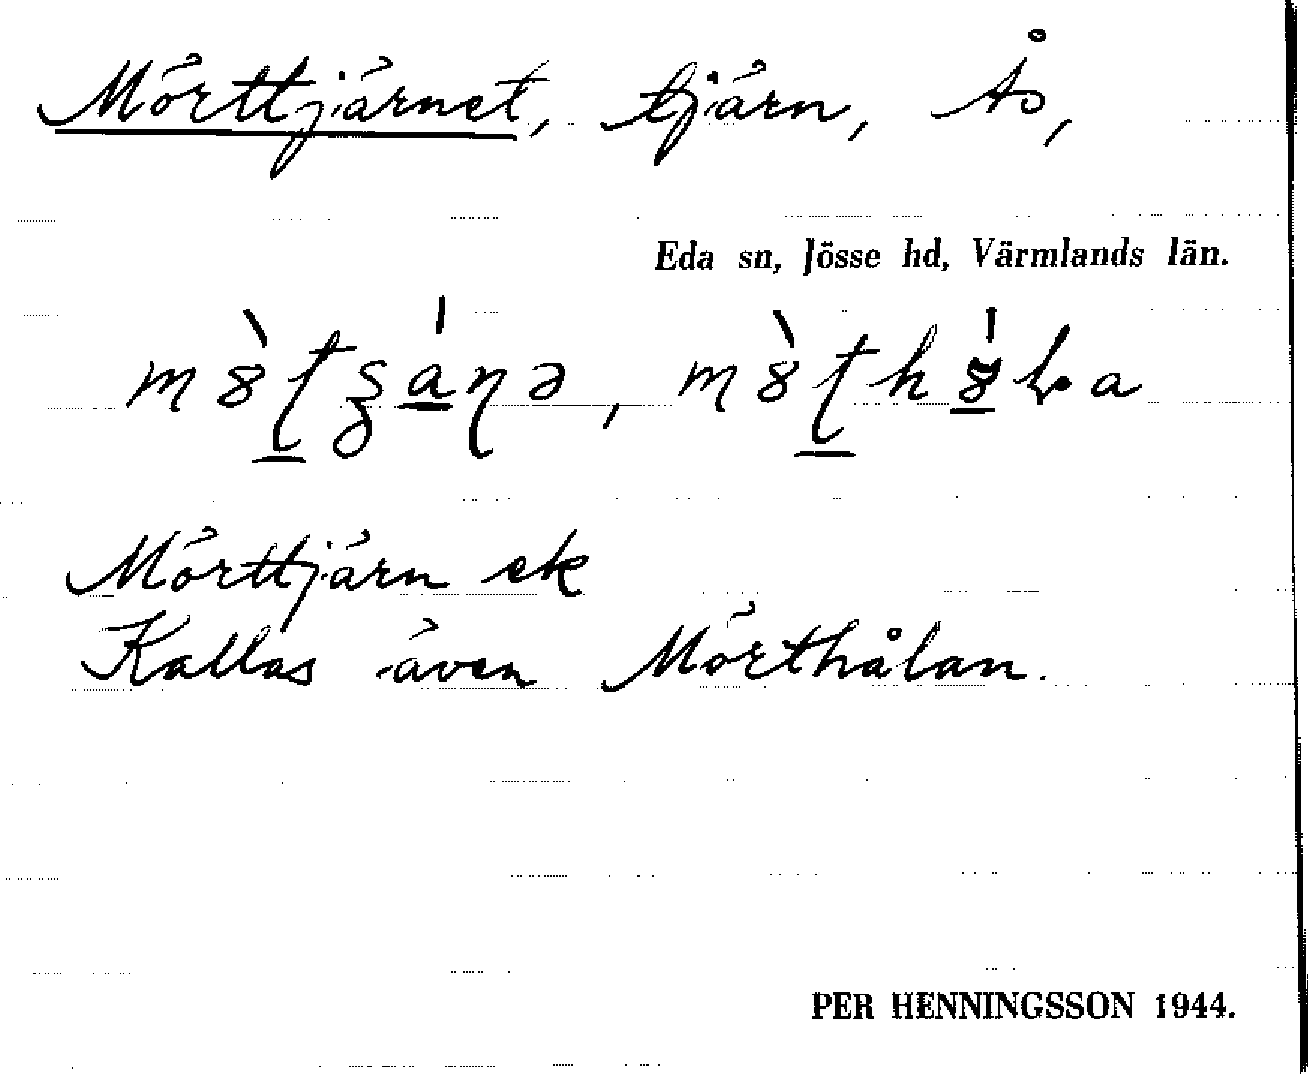 Mörttjärnet, tjärn, Ås,
Eda sn, Jösse hd, Värmlands län.
Mörttjärn ek
Kallas även Mörthålan.
PER HENNINGSSON 1944.